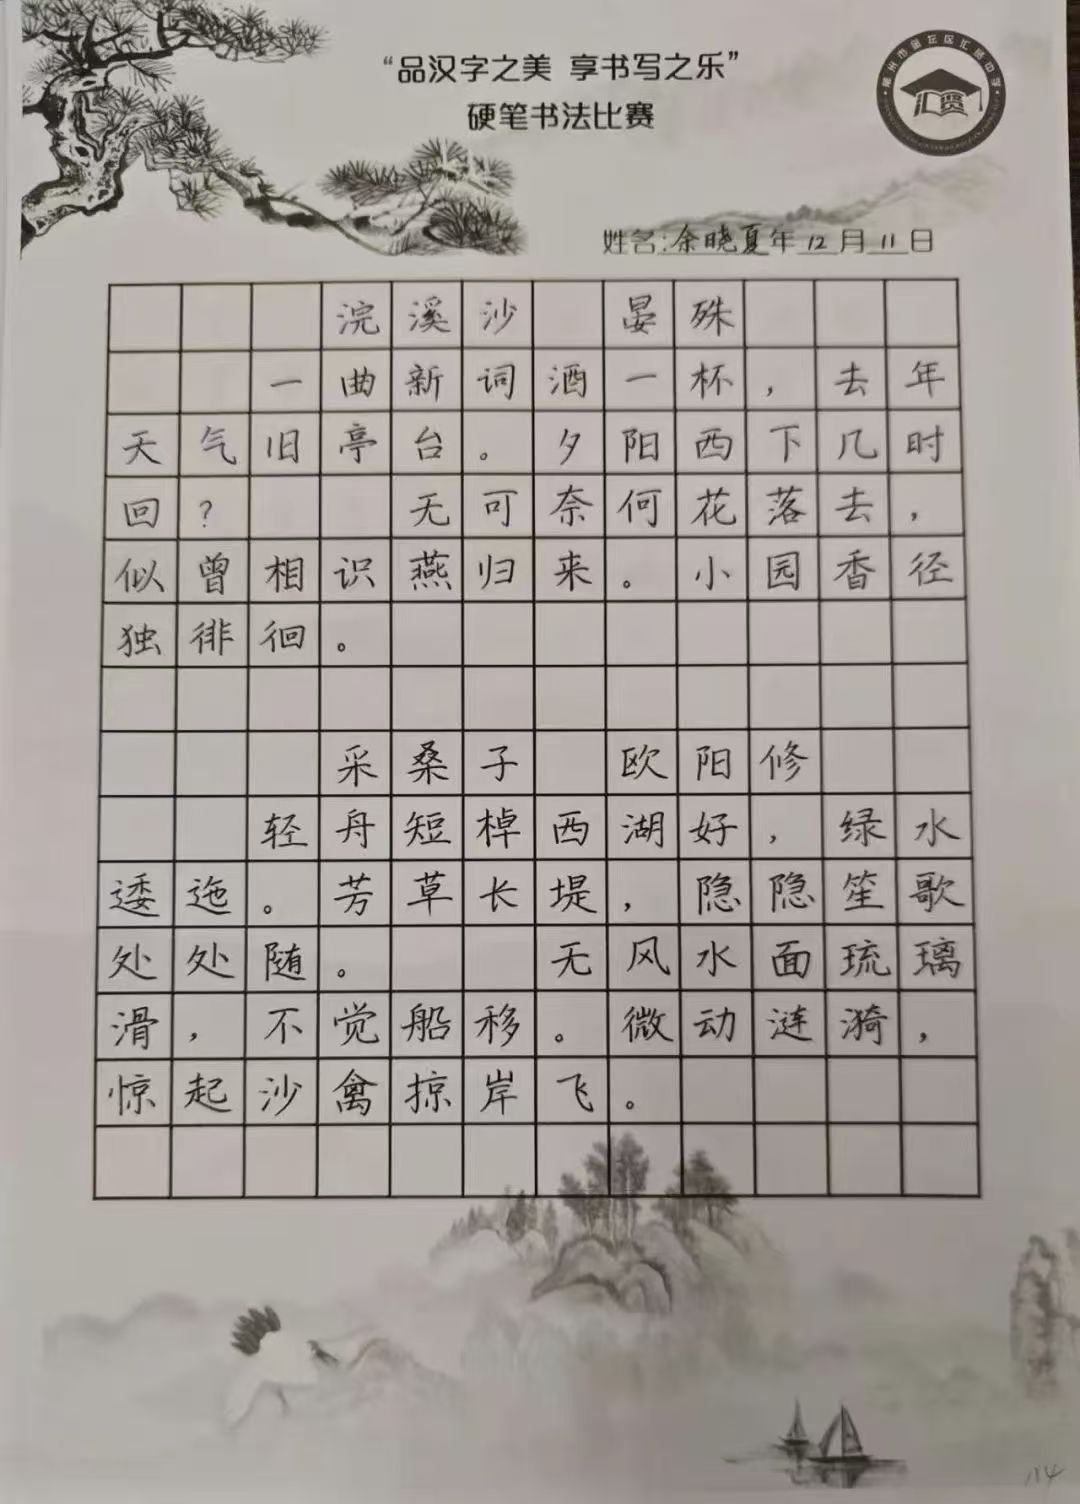 “品汉字之美 享书写之乐”
硬笔书法比赛
汇贤
姓名:余晓夏年12月11日
浣溪沙 晏殊
一曲新词酒一杯，去年
天气旧亭台。夕阳西下几时
回？ 无可奈何花落去，
似曾相识燕归来。小园香径
独徘徊。
采桑子 欧阳修
轻舟短棹西湖好，绿水
逶迤。芳草长堤，隐隐笙歌
处处随。 无风水面琉璃
滑，不觉船移。微动涟漪，
惊起沙禽掠岸飞。